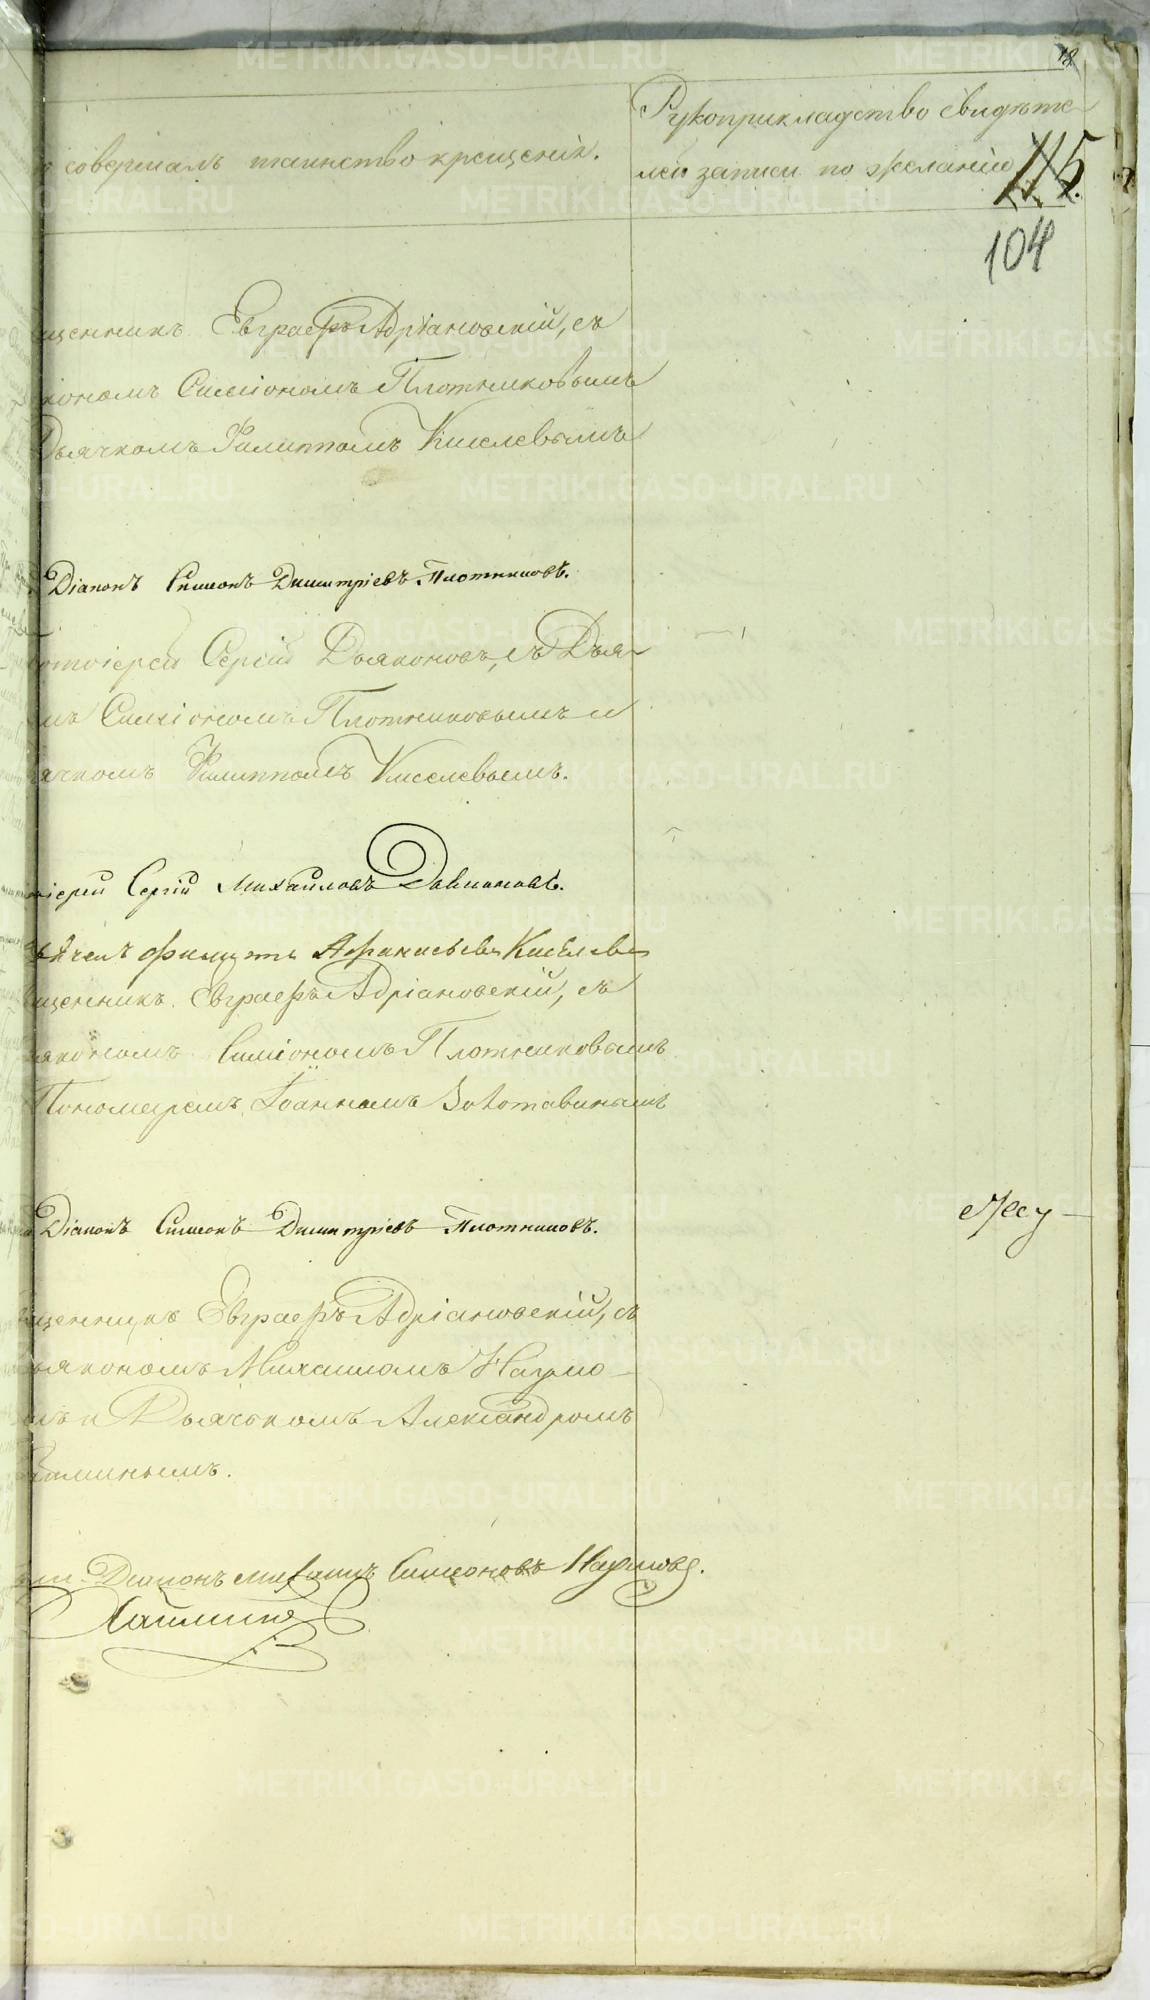 18
Рукоприкладство свидѣте
совершалъ таинство крещенія.
лей записи по желанію
115
104
щенникъ Евграфъ Адріановскій, съ
кономъ Симіономъ Плотниковымъ
Дьячкомъ Филиппомъ Киселевымъ
Діаконъ Симеонъ Димитріевъ Плотниковъ.
отоіерей Сергій Дьяконовъ, съ Дья
мъ Симіономъ Плотниковымъ и
ячкомъ Филиппомъ Киселевымъ.
іерей Сергій Михайловъ Дьяконовъ.
Филиппъ Афанасьевъ Киселевъ
щенникъ Евграфъ Адріановскій, съ
якономъ Симіономъ Плотниковымъ
Пономаремъ Іоанномъ Золотавинымъ
Діаконъ Симеонъ Димитріевъ Плотниковъ.
щенникъ Евграфъ Адріановскій, съ
ьякономъ Михаиломъ Наумо
ъ и Дьячькомъ Александромъ
миннымъ.
Діаконъ Михаилъ Симеоновъ Наумовъ.
METRIKI.GASO-URAL.RU